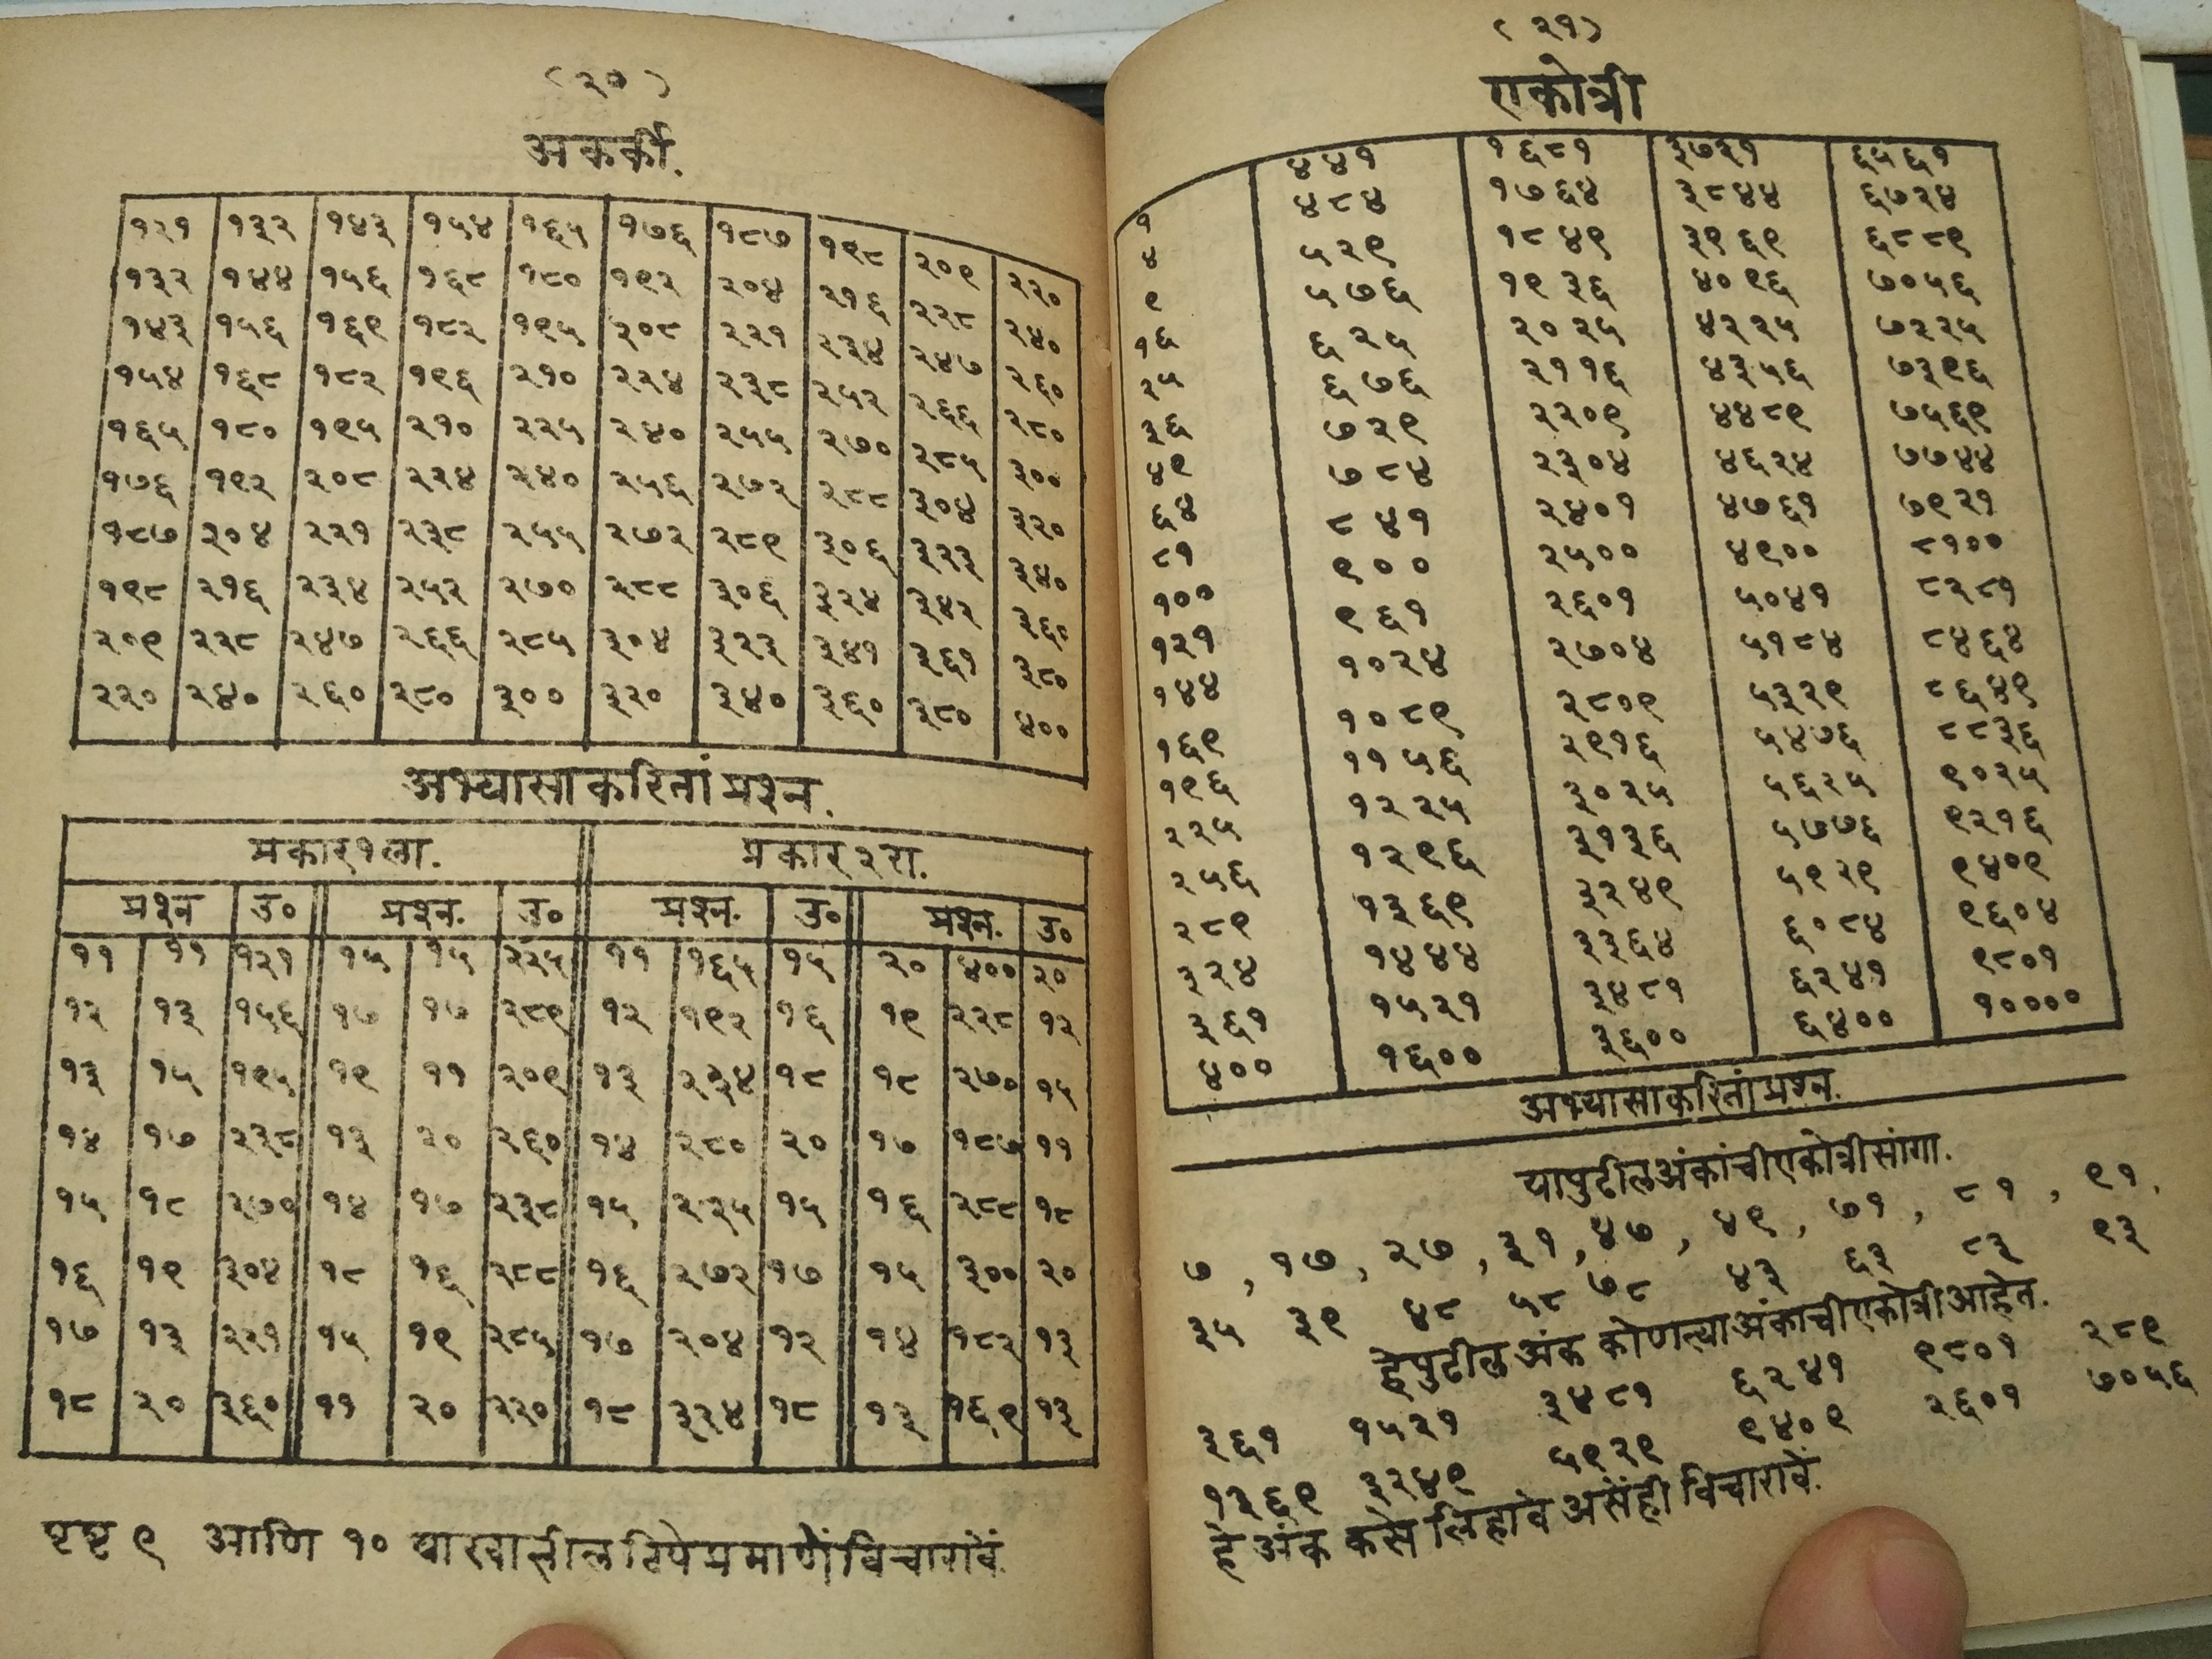 (२०)
अकर्की.
१२१ १३२ १४३ १५४ १६५ १७६ १८७ १९८ २०९ २२०
१३२ १४४ १५६ १६८ १८० १९२ २०४ २१६ २२८ २४०
१४३ १५६ १६९ १८२ १९५ २०८ २२१ २३४ २४७ २६०
१५४ १६८ १८२ १९६ २१० २२४ २३८ २५२ २६६ २८०
१६५ १८० १९५ २१० २२५ २४० २५५ २७० २८५ ३००
१७६ १९२ २०८ २२४ २४० २५६ २७२ २८८ ३०४ ३२०
१८७ २०४ २२१ २३८ २५५ २७२ २८९ ३०६ ३२३ ३४०
१९८ २१६ २३४ २५२ २७० २८८ ३०६ ३२४ ३४२ ३६०
२०९ २२८ २४७ २६६ २८५ ३०४ ३२३ ३४१ ३६१ ३८०
२२० २४० २६० २८० ३०० ३२० ३४० ३६० ३८० ४००
अभ्यासाकरितां प्रश्न.
प्रकार १ ला. प्रकार २ रा.
प्रश्न उ० प्रश्न. उ० प्रश्न. उ० प्रश्न. उ०
११ ११ १२१ १५ १५ २२५ ११ १६५ १५ २० ४०० २०
१२ १३ १५६ १७ १७ २८९ १२ १९२ १६ १९ २२८ १२
१३ १५ १९५ १९ ११ २०९ १३ २३४ १८ १८ २७० १५
१४ १७ २३८ १३ २० २६० १४ २८० २० १७ १८७ ११
१५ १८ २७० १४ १७ २३८ १५ २२५ १५ १६ २८८ १८
१६ १९ ३०४ १८ १६ २८८ १६ २७२ १७ १५ ३०० २०
१७ १३ २२१ १५ १९ २८५ १७ २०४ १२ १४ १८२ १३
१८ २० ३६० ११ २० २२० १८ ३२४ १८ १३ १६९ १३
पृष्ट ९ आणि १० याखालील टिपेप्रमाणें विचारावें.
(२१)
एकोत्री
१ ४४१ १६८१ ३७२१ ६५६१
४ ४८४ १७६४ ३८४४ ६७२४
९ ५२९ १८४९ ३९६९ ६८८९
१६ ५७६ १९३६ ४०९६ ७०५६
२५ ६२५ २०२५ ४२२५ ७२२५
३६ ६७६ २११६ ४३५६ ७३९६
४९ ७२९ २२०९ ४४८९ ७५६९
६४ ७८४ २३०४ ४६२४ ७७४४
८१ ८४१ २४०१ ४७६१ ७९२१
१०० ९०० २५०० ४९०० ८१००
१२१ ९६१ २६०१ ५०४१ ८२८१
१४४ १०२४ २७०४ ५१८४ ८४६४
१६९ १०८९ २८०९ ५३२९ ८६४९
१९६ ११५६ २९१६ ५४७६ ८८३६
२२५ १२२५ ३०२५ ५६२५ ९०२५
२५६ १२९६ ३१३६ ५७७६ ९२१६
२८९ १३६९ ३२४९ ५९२९ ९४०९
३२४ १४४४ ३३६४ ६०८४ ९६०४
३६१ १५२१ ३४८१ ६२४१ ९८०१
४०० १६०० ३६०० ६४०० १००००
अभ्यासाकरितां प्रश्न.
या पुढील अंकांची एकोत्री सांगा.
७, १७, २७, ३१, ४७, ४९, ७१, ८१, ९१,
३५ ३९ ४८ ५८ ७८ ४३ ६३ ८३ ९३
हे पुढील अंक कोणत्या अंकाची एकोत्री आहेत.
३६१ १५२१ ३४८१ ६२४१ ९८०१ २८९
१३६९ ३२४९ ५९२९ ९४०९ २६०१ ७०५६
हे अंक कसे लिहावे असेंही विचारावें.